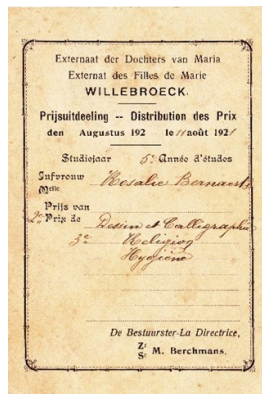 Externaat der Dochters van Maria
Externat des Filles de Marie
WILLEBROECK.
Prijsuitdeeling -- Distribution des Prix
den Augustus 192 le 11 août 1921
Studiejaar 5e Année d'études
Jufvrouw
Melle Rosalie Bernaerts
Prijs van
2e Prix de Dessin et Calligraphie
3e Religion
Hygiène
De Bestuurster-La Directrice,
Zr
Sr M. Berchmans.